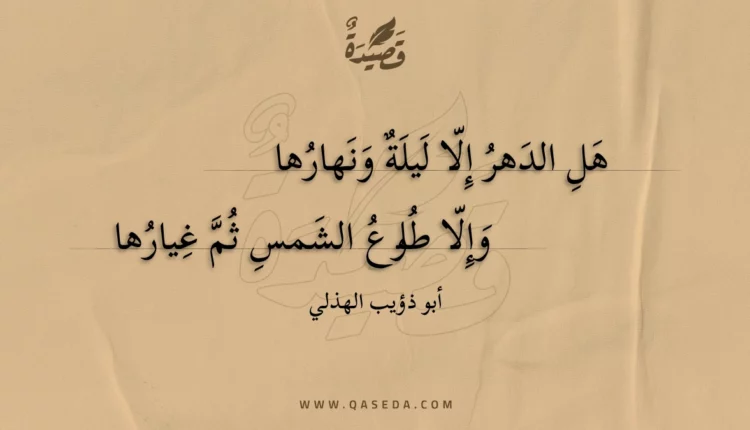 قَصِيْدَةٌ
هَلِ الدَهرُ إِلّا لَيلَةٌ وَنَهارُها
وَإِلّا طُلوعُ الشَمسِ ثُمَّ غِيارُها
أبو ذؤيب الهذلي
WWW.QASEDA.COM